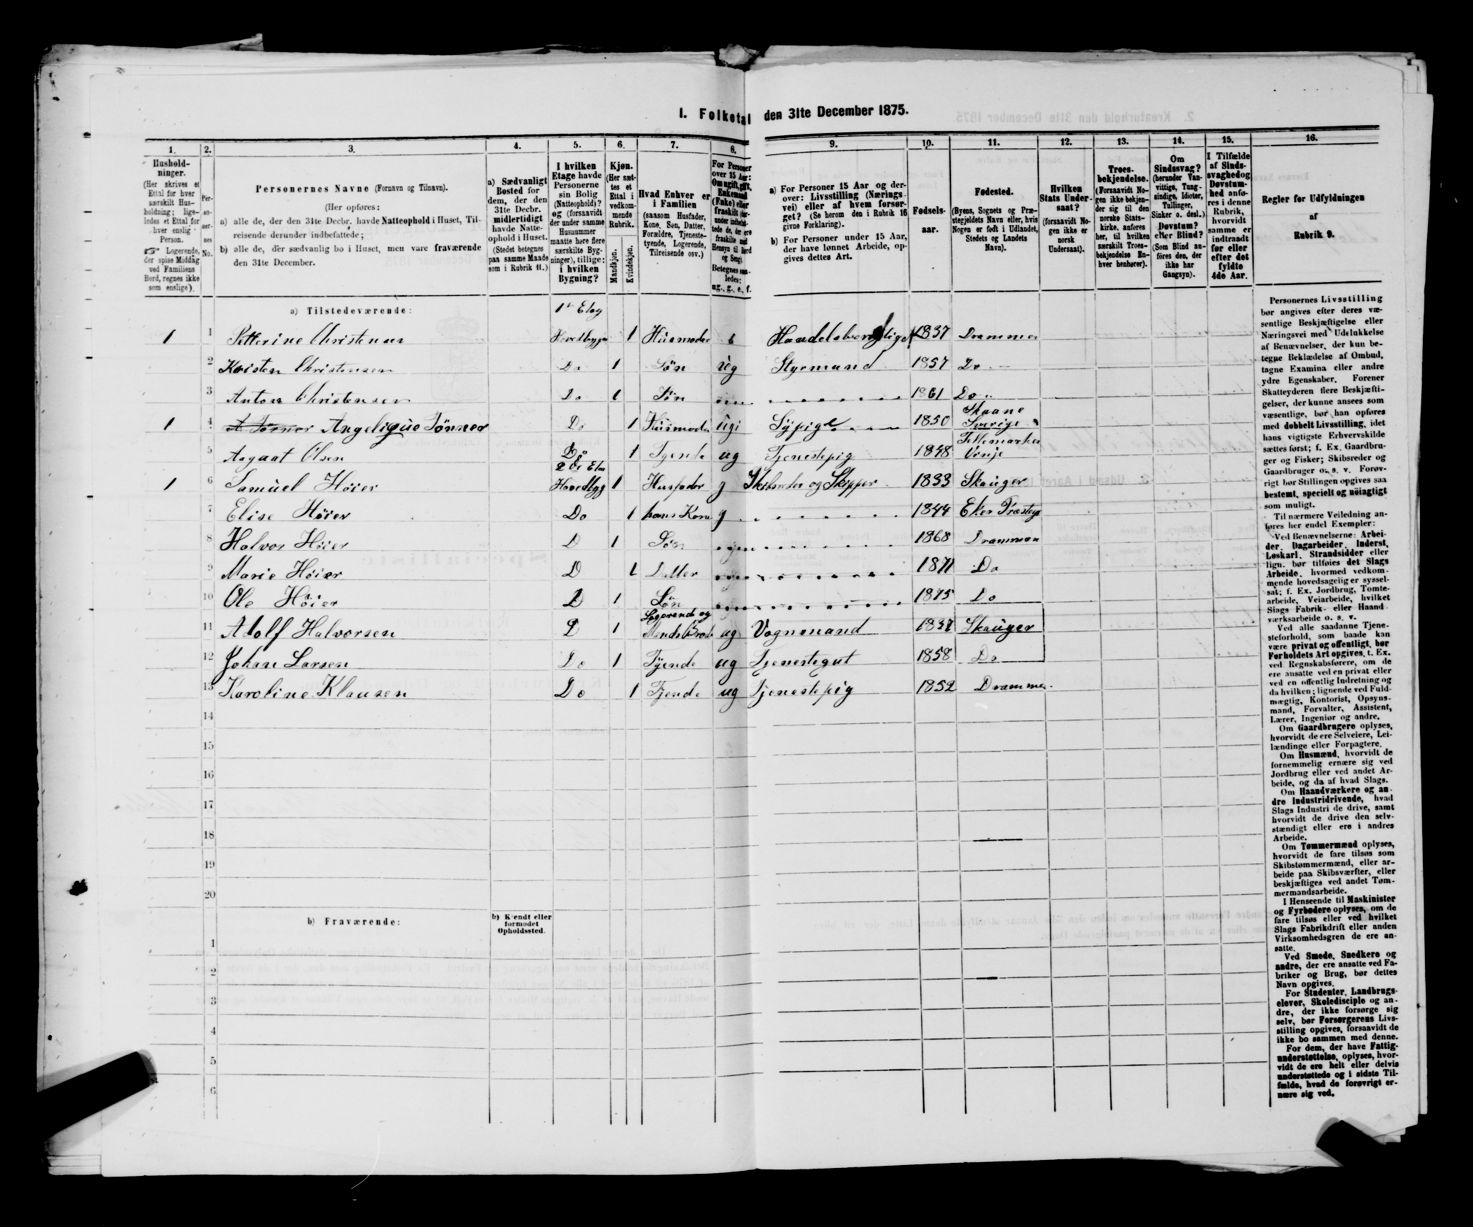 1. Folketal den 31te December 1875.
1. 2. 3. 4. 5. 6. 7. 8. 9. 10. 11. 12. 13. 14. 15. 16.
Husholdninger.
(Her skrives et Ettal for hver særskilt Husholdning; ligeledes et Ettal for hver enslig Person.
☞ Logerende, der spise Middag ved Familiens Bord, regnes ikke som enslige).
Personernes No.
Personernes Navne (Fornavn og Tilnavn).
(Her opføres:
a) alle de, der den 31te Decbr. havde Natteophold i Huset, Tilreisende derunder indbefattede;
b) alle de, der sædvanlig bo i Huset, men vare fraværende den 31te December.
a) Sædvanligt Bosted for dem, der den 31te Decbr. midlertidigt havde Natteophold i Huset.
(Stedet betegnes paa samme Maade som i Rubrik 11.)
I hvilken Etage havde Personerne sin Bolig (Natteophold)? og (forsaavidt der under samme Husnummer maatte høre flere særskilte Bygninger), tillige: i hvilken Bygning?
Kjøn.
(Her sættes et Ettal i vedkommende Rubrik.
Mandkjøn. Kvindekjøn.
Hvad Enhver er i Familien
(saasom Husfader, Kone, Søn, Datter, Forældre, Tjenestetyende, Logerende, Tilreisende osv.)
For Personer over 15 Aar: Om ugift, gift, Enkemand (Enke) eller fraskilt
Betegnes saaledes: ug., g., e., f.
a) For Personer 15 Aar og derover: Livsstilling (Næringsvei) eller af hvem forsørget? (Se herom den i Rubrik 16 givne Forklaring).
b) For Personer under 15 Aar, der have lønnet Arbeide, opgives dettes Art.
Fødselsaar.
Fødested.
(Byens, Sognets og Præstegjeldets Navn eller, hvis Nogen er født i Udlandet, Stedets og Landets Navn).
Hvilken Stats Undersaat?
(forsaavidt Nogen ikke er norsk Undersaat).
Troesbekjendelse.
(Forsaavidt Nogen ikke bekjender sig til den norske Statskirke, anføres her, til hvilken særskilt Troesbekjendelse Enhver henhører).
Om Sindssvag?
(herunder Vanvittige, Tungsindige, Idioter, Tullinger, Sinker o. desl.)
Døvstum? eller Blind?
(Som Blind anføres den, der ikke har Gangsyn).
I Tilfælde af Sindssvaghed og Døvstumhed anføres i denne Rubrik, hvorvidt samme er indtraadt før eller efter det fyldte 4de Aar.
Regler for Udfyldningen af Rubrik 9.
a) Tilstedeværende: 1ste Etag
1 1 Petterine Christensen Hovedbygn 1 Husmoder e Handelsberettiget 1837 Drammen
2 Kristen Christensen Do 1 Søn ug Styrmand 1857 Do
3 Anton Christensen Do 1 Søn 1861 Do
1 4 Angelique Tønner Do 1 Husmoder ugi Sypige 1850 Skaane Sverige
5 Aagaat Olsen Do 1 Tjende ug Tjenestepig 1848 Tellemarken Venje
2de Etag
1 6 Samuel Høier Hovedbyg 1 Husfader g Skibsreder og Skipper 1833 Skauger
7 Elise Høier Do 1 hans Kone g 1844 Eker Præstegj
8 Halvor Høier D 1 Søn 1868 Drammen
9 Marie Høier D 1 Datter 1871 Do
10 Ole Høier D 1 Søn 1875 Do
11 Adolf Halvorsen D 1 Logerende og ug Vognmand Skauger
12 Johan Larsen Do 1 Tjende ug Tjenestegut 1858 Do
13 Karoline Klausen Do 1 Tjende ug Tjenestepig 1852 Drammen
14
15
16
17
18
19
20
b) Fraværende: b) Kjendt eller formodet Opholdssted.
1
2
3
4
5
6
Personernes Livsstilling bør angives efter deres væsentlige Beskjæftigelse eller Næringsvei med Udelukkelse af Benævnelser, der kun betegne Beklædelse af Ombud, tagne Examina eller andre ydre Egenskaber. Forener Skatteyderen flere Beskjæftigelser, der kunne ansees som væsentlige, bør han opføres med dobbelt Livsstilling, idet hans vigtigste Erhvervskilde sættes først; f. Ex. Gaardbruger og Fisker; Skibsreder og Gaardbruger o. s. v. Forøvrigt bør Stillingen opgives saa bestemt, specielt og nøiagtigt som muligt.
Til nærmere Veiledning anføres her endel Exempler:
Ved Benævnelserne: Arbeider, Dagarbeider, Inderst, Løskarl, Strandsidder eller lign. bør tilføies det Slags Arbeide, hvormed vedkommende hovedsagelig er sysselsat; f. Ex. Jordbrug, Tomtearbeide, Veiarbeide, hvilket Slags Fabrik- eller Haandværksarbeide o. s. v.
Ved alle saadanne Tjenesteforhold, som baade kan være privat og offentligt, bør Forholdets Art opgives, t. Ex. ved Regnskabsførere, om de ere ansatte ved en privat eller ved en offentlig Indretning og da hvilken; lignende ved Fuldmægtig, Kontorist, Opsynsmand, Forvalter, Assistent, Lærer, Ingeniør og andre.
Om Gaardbrugere oplyses, hvorvidt de ere Selveiere, Leilændinge eller Forpagtere.
Om Husmænd, hvorvidt de fornemmelig ernære sig ved Jordbrug eller ved andet Arbeide, og da af hvad Slags.
Om Haandværkere og andre Industridrivende, hvad Slags Industri de drive, samt hvorvidt de drive den selvstændigt eller ere i andres Arbeide.
Om Tømmermænd oplyses, hvorvidt de fare tilsøs som Skibstømmermænd, eller arbeide paa Skibsværfter, eller beskjæftiges ved andet Tømmermandsarbeide.
I Henseende til Maskinister og Fyrbødere oplyses, om de fare tilsøs eller ved hvilket Slags Fabrikdrift eller anden Virksomhedsgren de ere ansatte.
Ved Smede, Snedkere og andre, der ere ansatte ved Fabriker og Brug, bør dettes Navn opgives.
For Studenter, Landbrugselever, Skoledisciple og andre, der ikke forsørge sig selv, bør Forsørgerens Livsstilling opgives, forsaavidt de ikke bo sammen med denne.
For dem, der have Fattigunderstøttelse, oplyses, hvorvidt de ere helt eller delvis understøttede og i sidste Tilfælde, hvad de forøvrigt ernære sig ved.